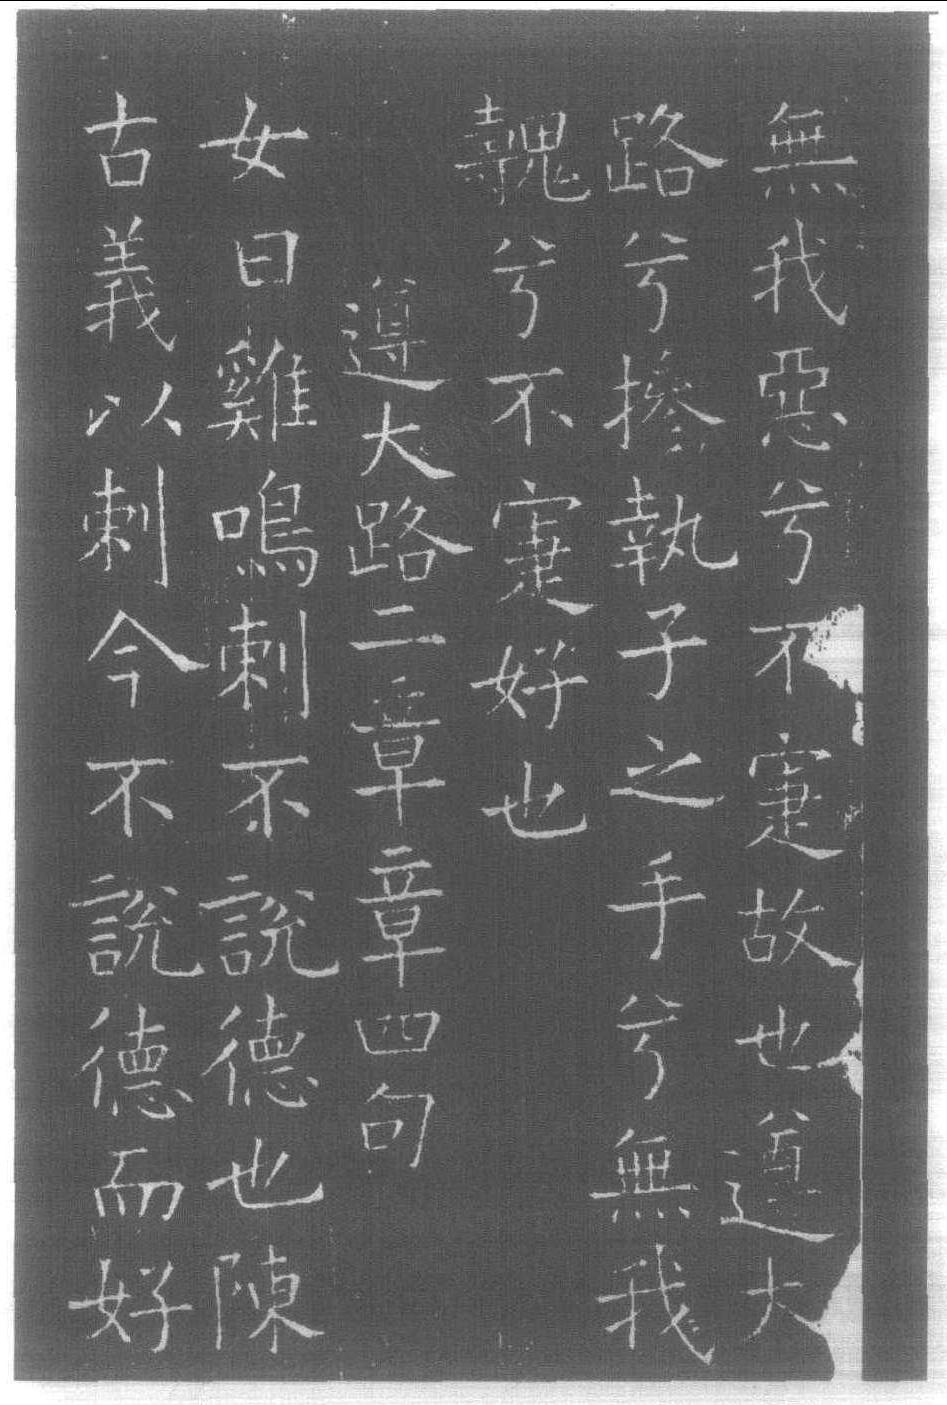 無我惡兮不寁故也遵大
路兮摻執子之手兮無我
魗兮不寁好也
遵大路二章章四句
女曰雞鳴刺不說德也陳
古義以刺今不說德而好